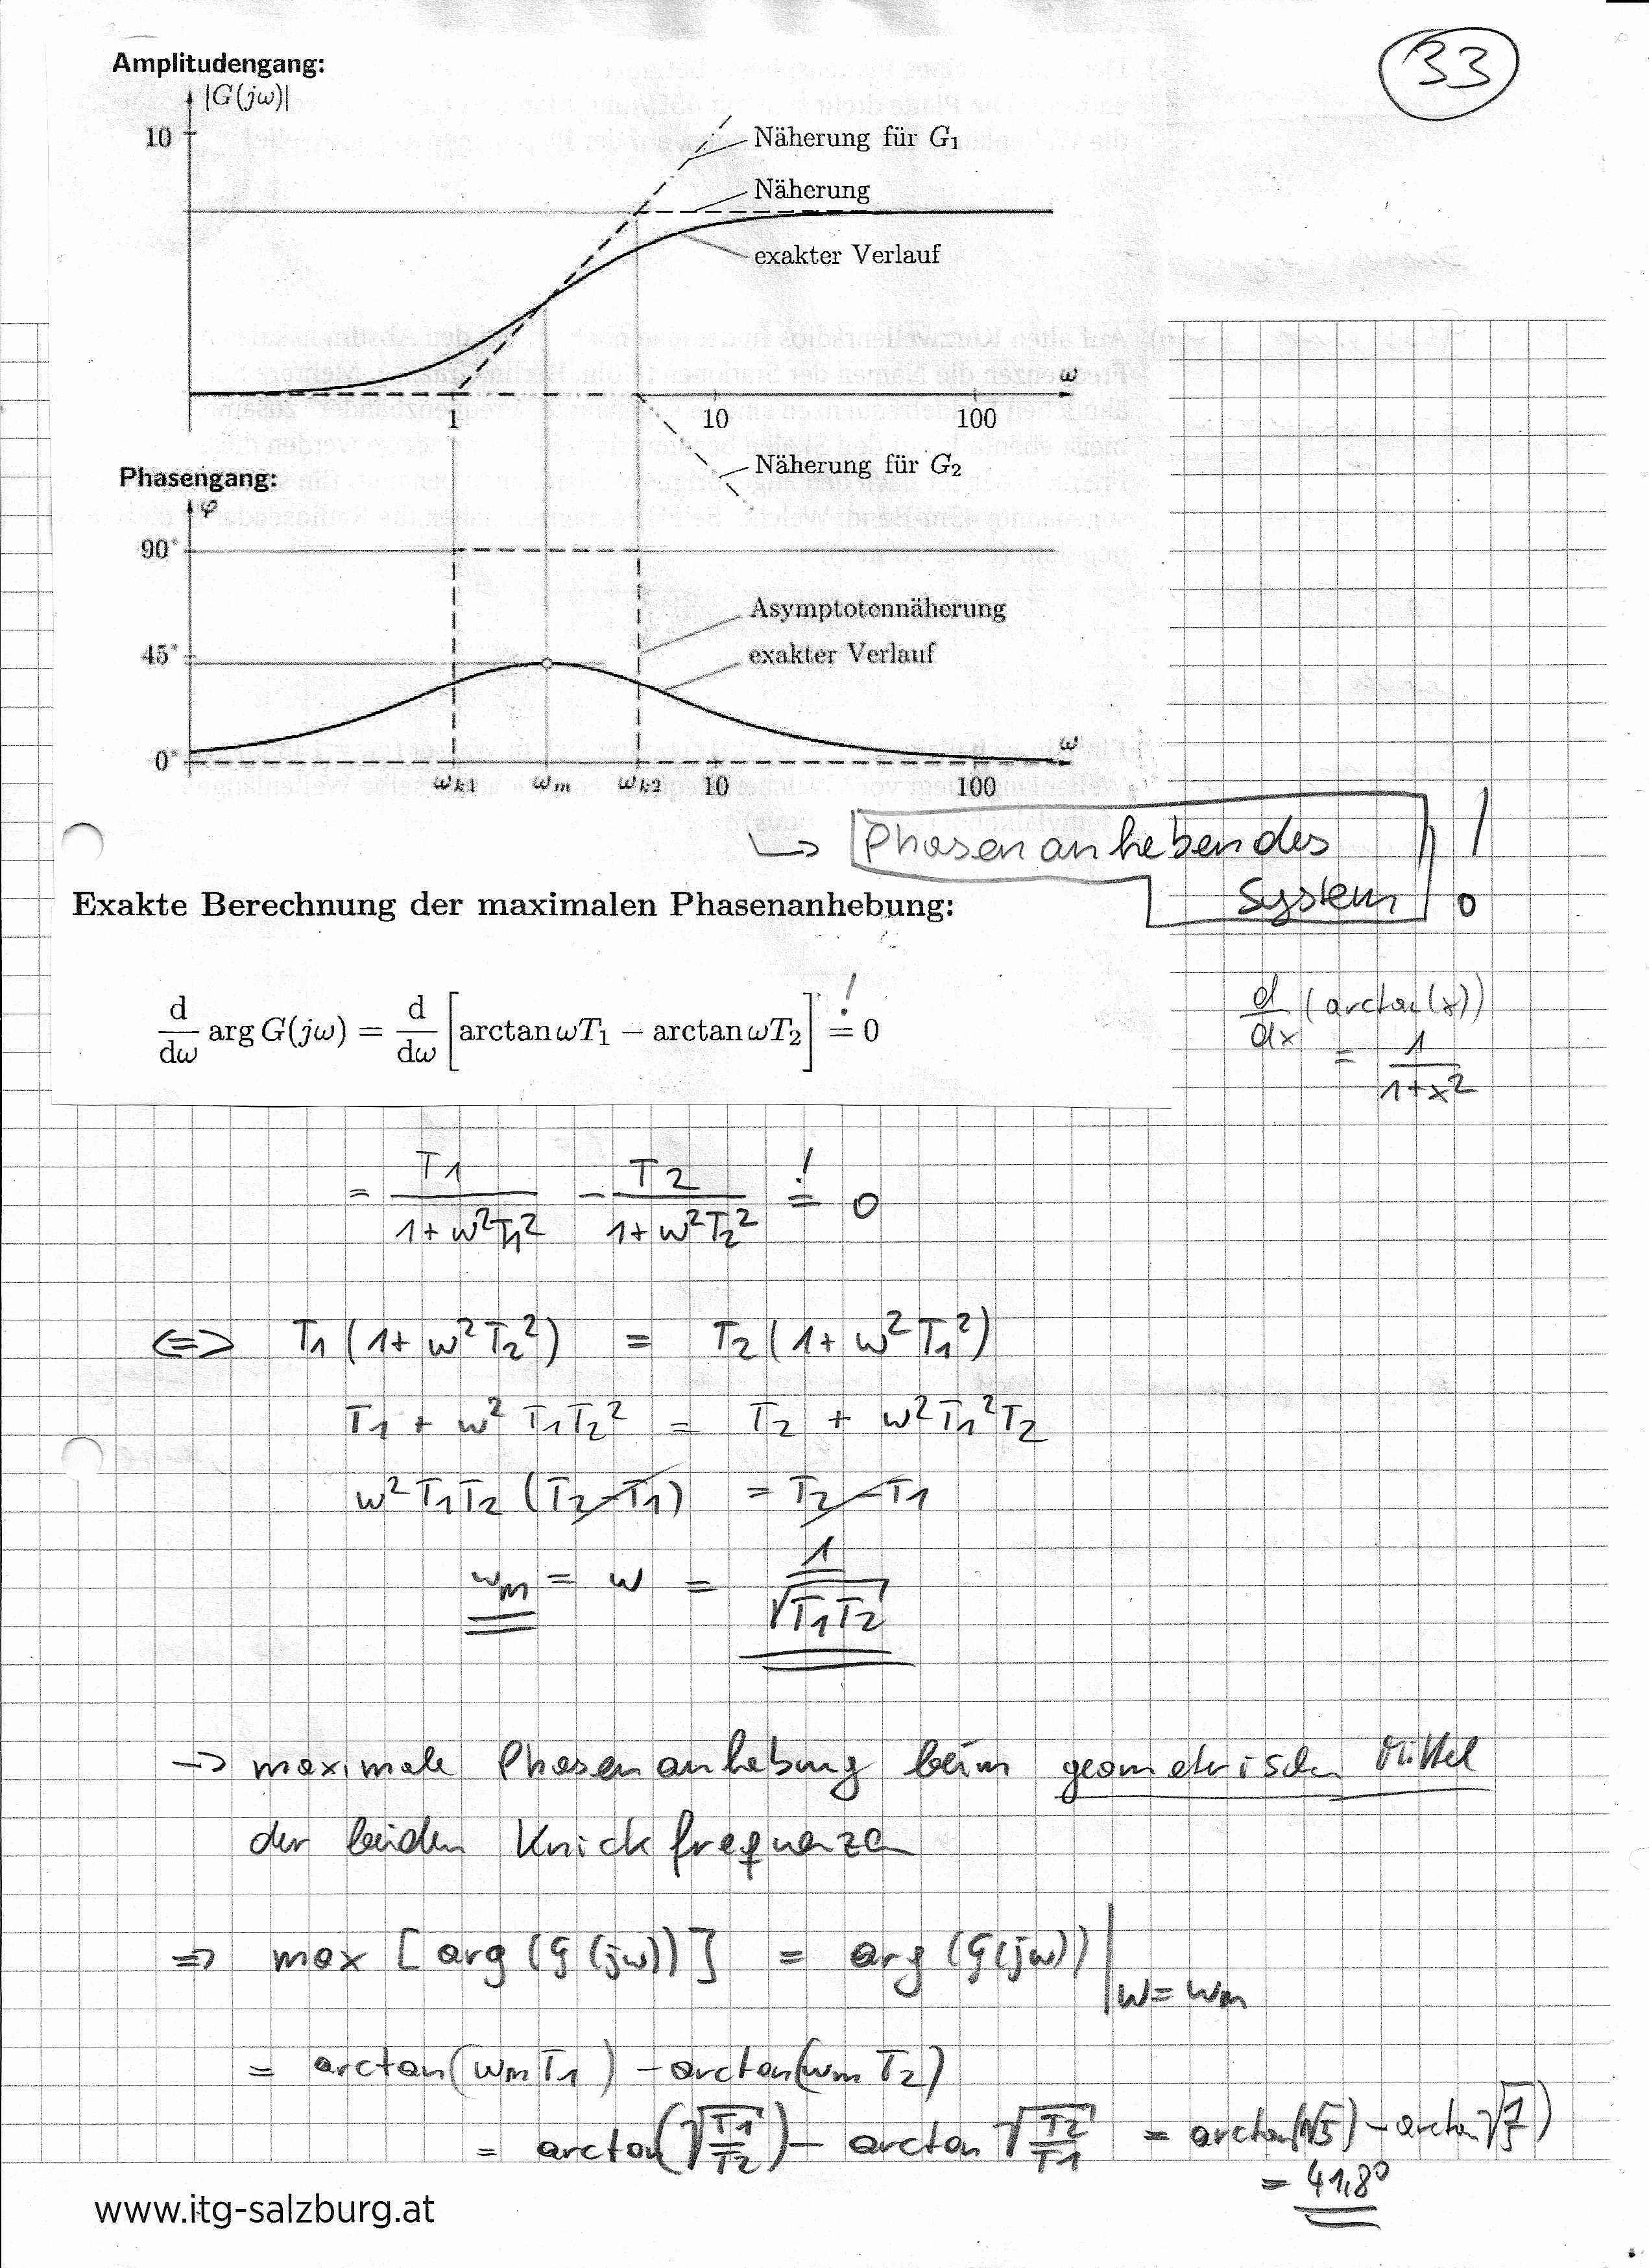 33
Amplitudengang:
|G(jω)|
10
Näherung für G₁
Näherung
exakter Verlauf
ω
1 10 100
Näherung für G₂
Phasengang:
φ
90°
Asymptotennäherung
45°
exakter Verlauf
0°
ω
ω_k1 ω_m ω_k2 10 100
↳ Phasenanhebendes !
System
Exakte Berechnung der maximalen Phasenanhebung:
d/dω arg G(jω) = d/dω [arctan ωT₁ − arctan ωT₂] != 0
d/dx (arctan(x))
= 1/(1+x²)
= T₁/(1+ω²T₁²) − T₂/(1+ω²T₂²) != 0
⇔ T₁(1+ω²T₂²) = T₂(1+ω²T₁²)
T₁ + ω²T₁T₂² = T₂ + ω²T₁²T₂
ω²T₁T₂(T₂−T₁) = T₂−T₁
ω_m = ω = 1/√(T₁T₂)
→ maximale Phasenanhebung beim geometrischen Mittel
der beiden Knickfrequenzen
⇒ max [arg(G(jω))] = arg(G(jω))|ω=ω_m
= arctan(ω_m T₁) − arctan(ω_m T₂)
= arctan(√(T₁/T₂)) − arctan √(T₂/T₁) = arctan(√5) − arctan √(1/5))
= 41,8°
www.itg-salzburg.at